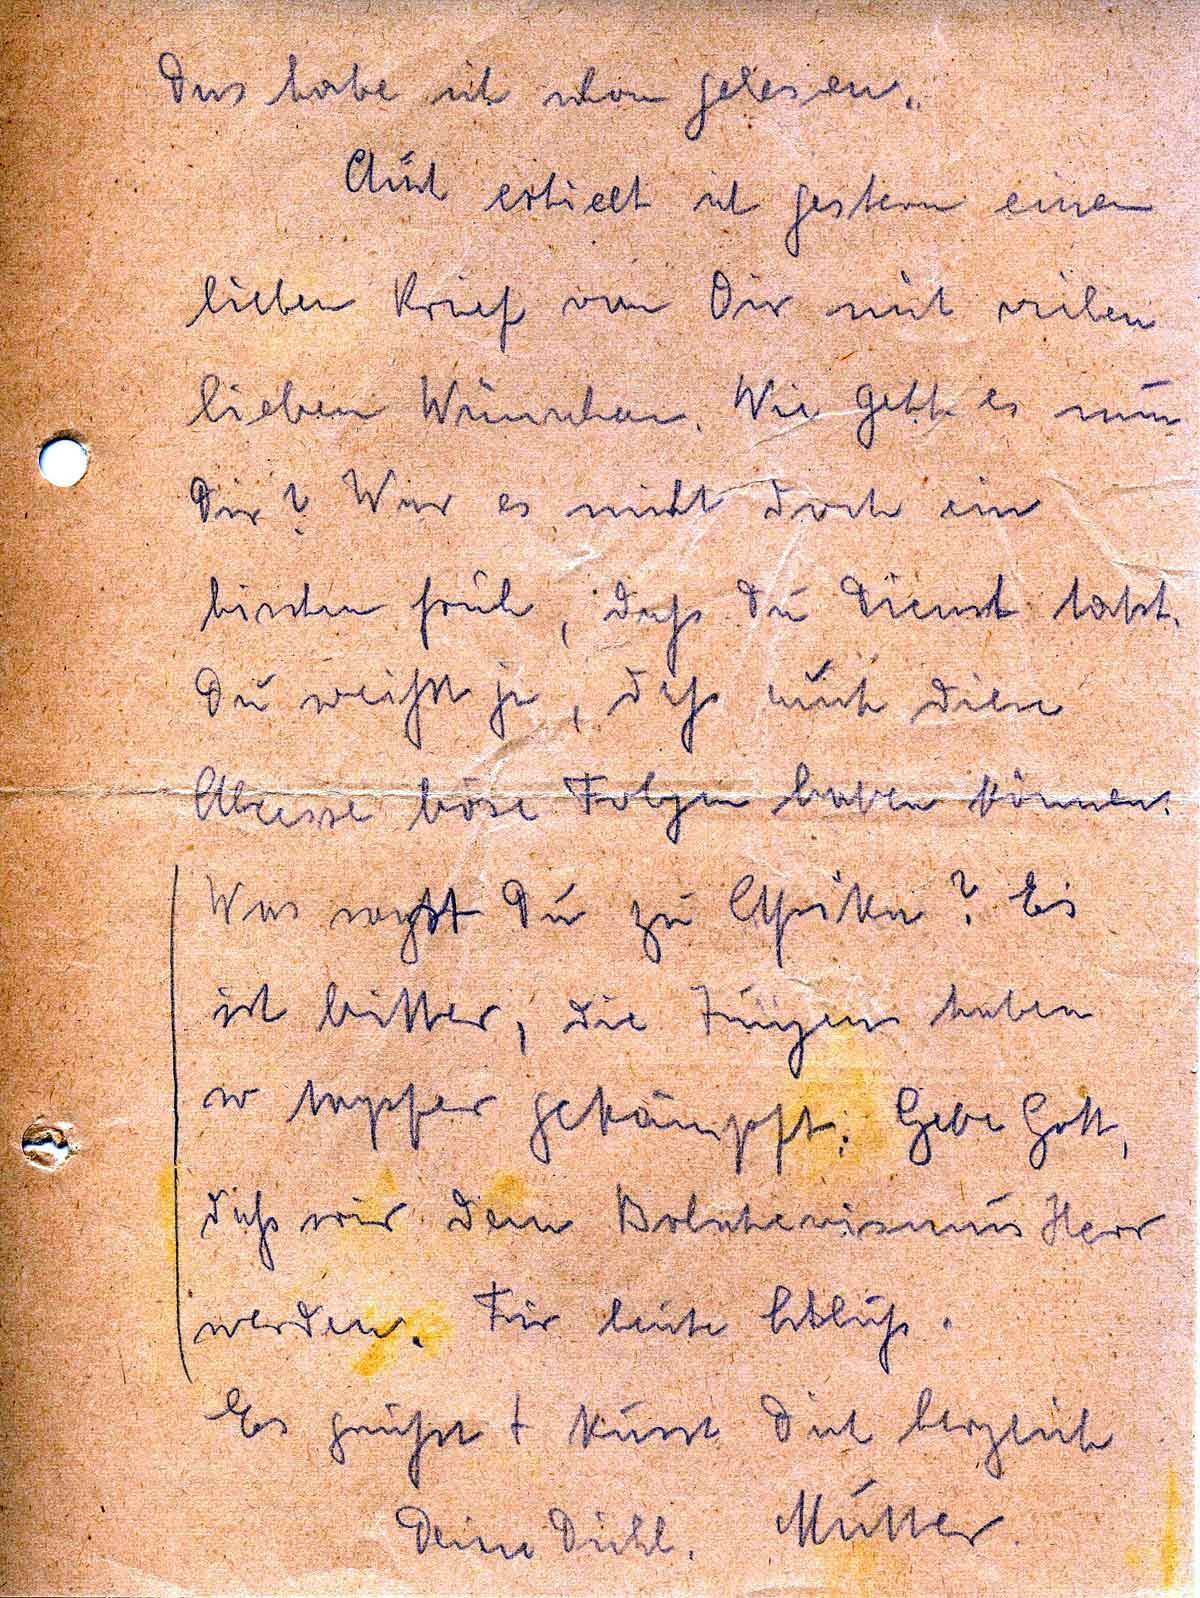 Das habe ich schon gelesen."
Auch erhielt ich gestern einen
lieben Brief von Dir mit vielen
lieben Wünschen. Wie geht es nun
Dir? War es nicht doch ein
bisschen früh, daß Du Dienst tatst.
Du weißt ja, daß auch diese
Abzesse böse Folgen haben können.
Was sagst Du zu Afrika? Es
ist bitter, die Jungens haben
so tapfer gekämpft. Gebe Gott,
daß wir dem Bolschewismus Herr
werden. Für heute Schluß.
Es grüßt + küsst Dich herzlich
Deine Mutter.